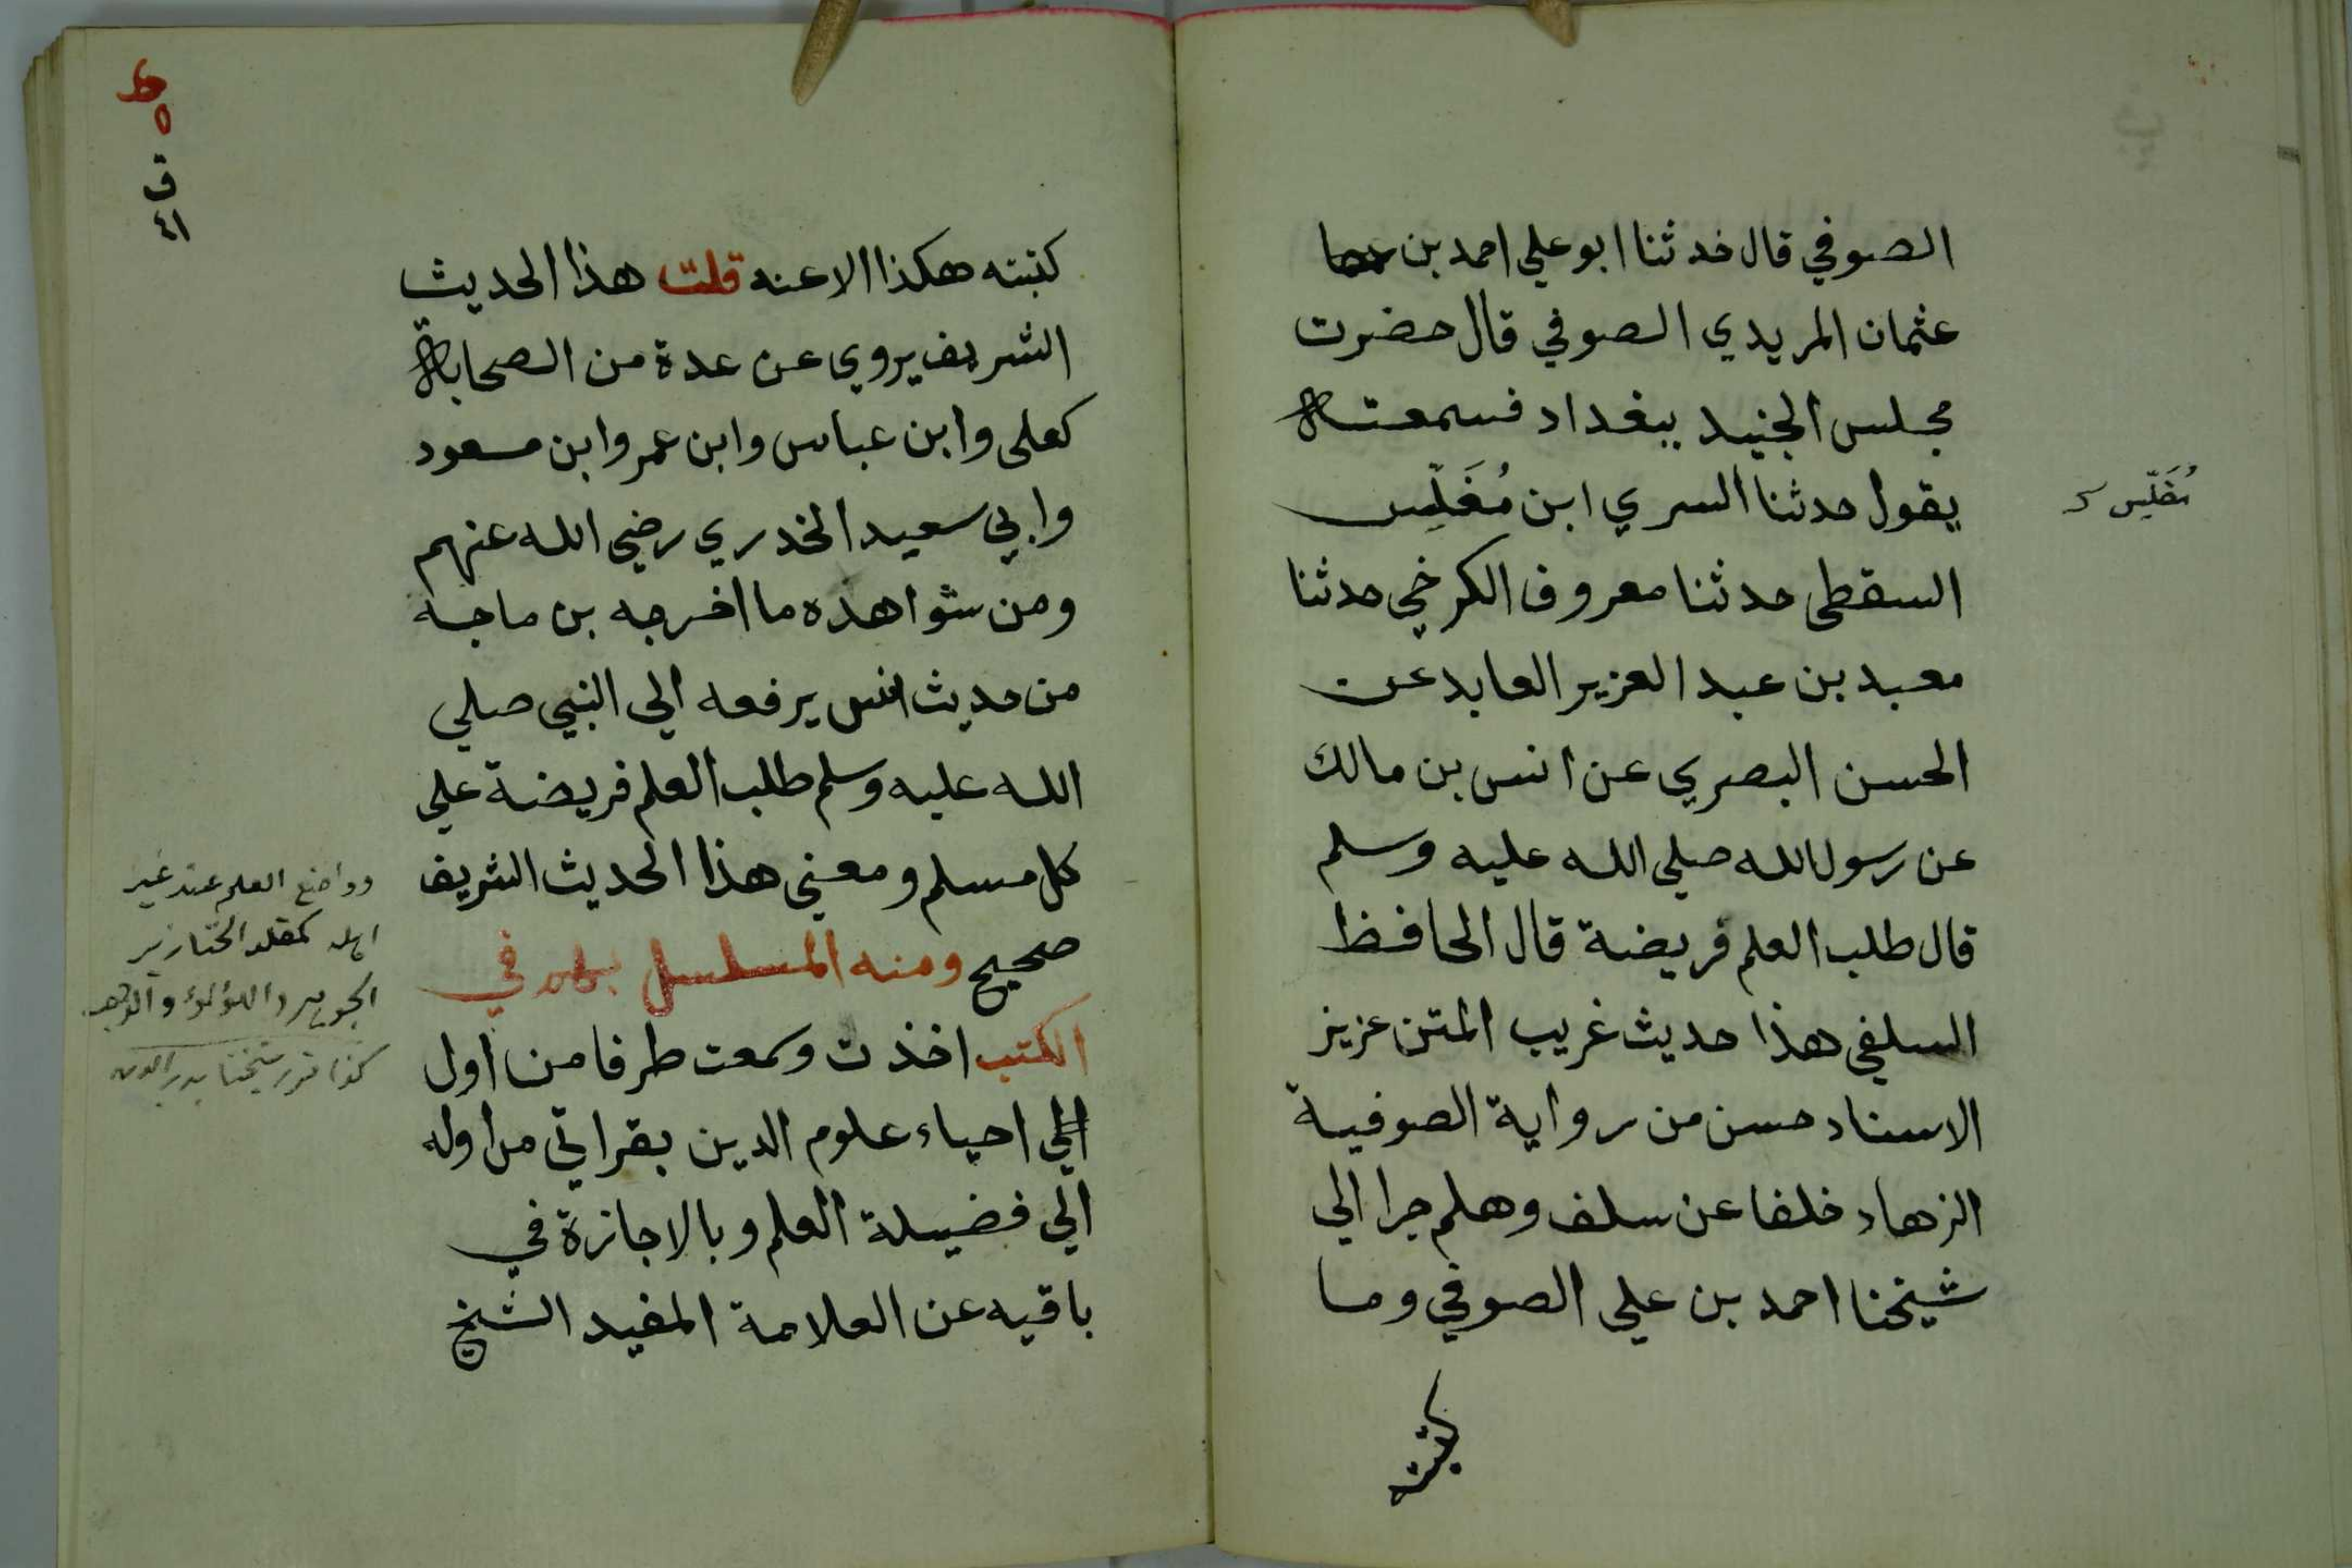 الصوفي قال حدثنا ابو علي احمد بن
عثمان المريدي الصوفي قال حضرت
مجلس الجنيد ببغداد فسمعته
يقول حدثنا السري ابن مُغَلِّس
مُغَلِّس
السقطي حدثنا معروف الكرخي حدثنا
معبد بن عبد العزيز العابد عن
الحسن البصري عن انس بن مالك
عن رسول الله صلي الله عليه وسلم
قال طلب العلم فريضة قال الحافظ
السلفي هذا حديث غريب المتن عزيز
الاسناد حسن من رواية الصوفية
الزهاد خلفا عن سلف وهلم جرا الي
شيخنا احمد بن علي الصوفي وما
كتبته
ط
٥
ق
٤١
كتبته هكذا الا عنه قلت هذا الحديث
الشريف يروي عن عدة من الصحابة
كعلي وابن عباس وابن عمر وابن مسعود
وابي سعيد الخدري رضي الله عنهم
ومن شواهده ما اخرجه بن ماجه
من حديث انس يرفعه الي النبي صلي
الله عليه وسلم طلب العلم فريضة علي
كل مسلم ومعني هذا الحديث الشريف
صحيح ومنه المسلسل في
الكتب اخذت وسمعت طرفا من اول
الي احياء علوم الدين بقراتي من اوله
الي فضيلة العلم وبالاجازة في
باقيه عن العلامة المفيد الشيخ
وواضع العلم عند غير
اهله كمقلد الخنازير
الجوهر واللؤلؤ والذهب
كذا قرر شيخنا بدر الدين